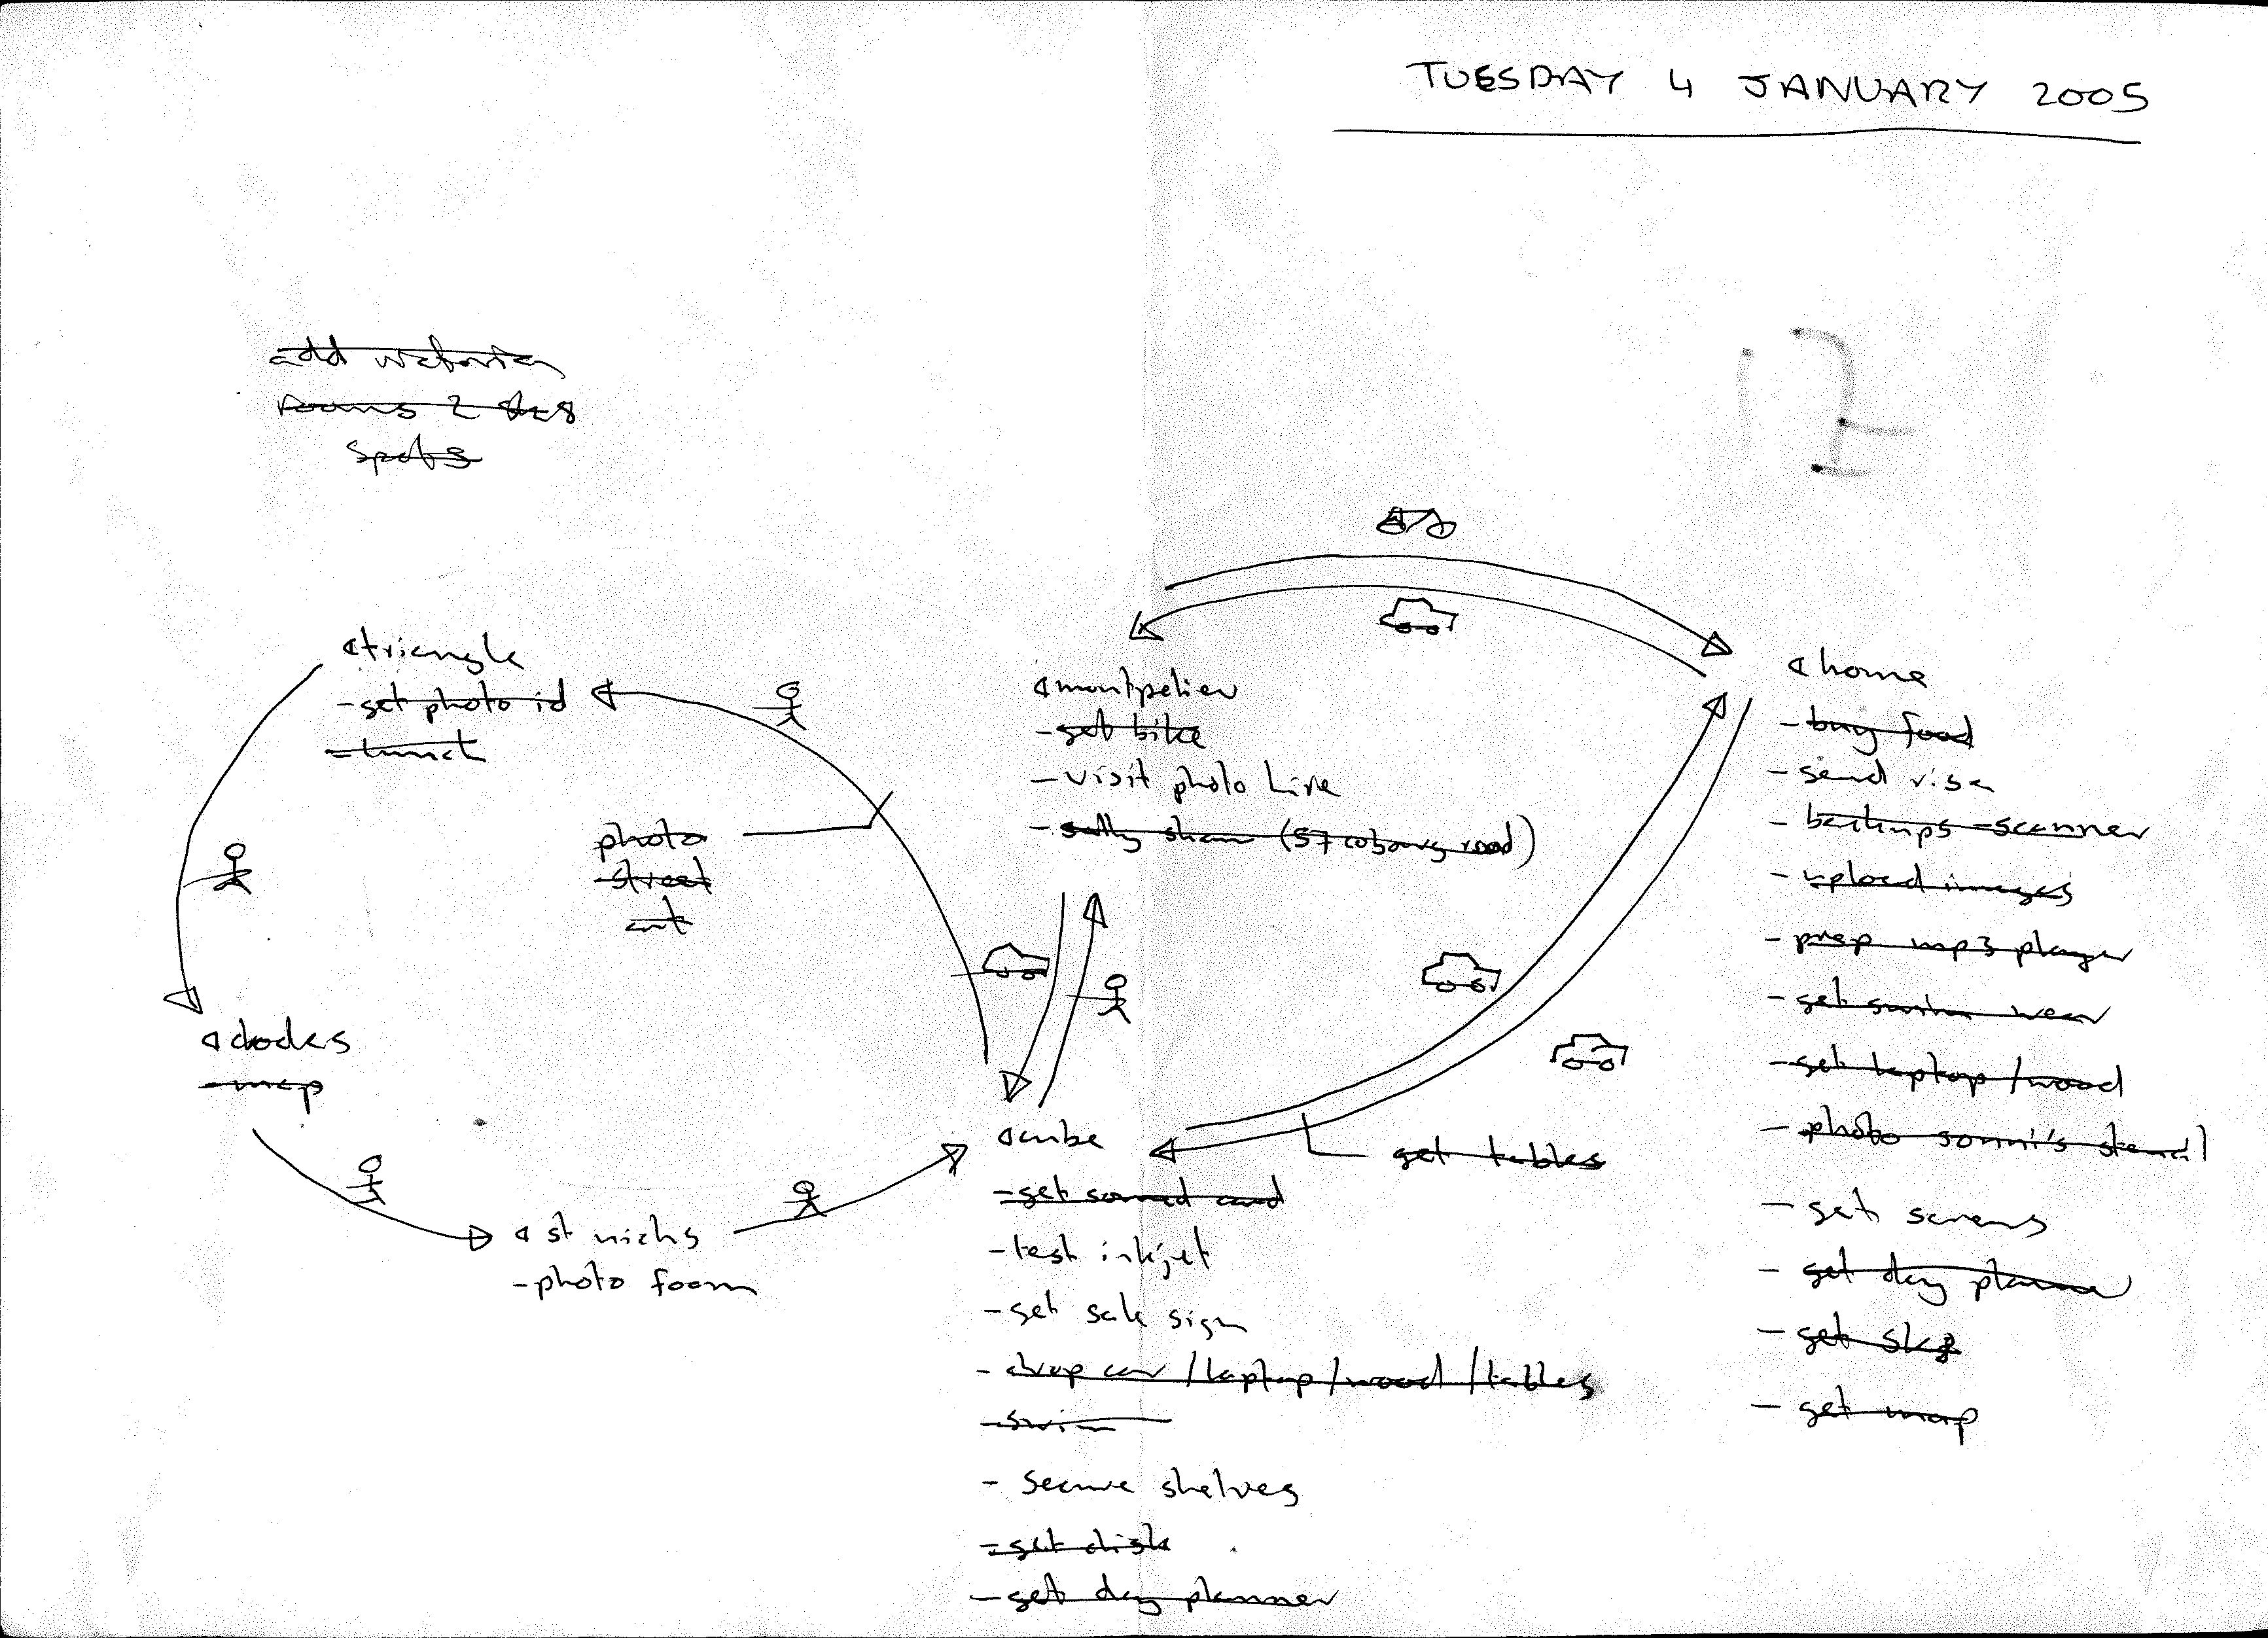 TUESDAY 4 JANUARY 2005
add
rooms 2
spots
triangle
- get photo id
- lunch
photo
street
art
docks
- map
st nichs
- photo foam
montpelier
- get bike
- visit photo Live
- sally shaw (57 cobourg road)
cube
- get sound card
- test inkjet
- get sale sign
- drop car / laptop / wood / tables
- swim
- secure shelves
- get disk
- get day planner
get tables
home
- buy food
- send visa
- backups - scanner
- upload images
- prep mp3 player
- get swim wear
- get laptop / wood
- photo sonni's stencil
- get screws
- get day planner
- get
- get map